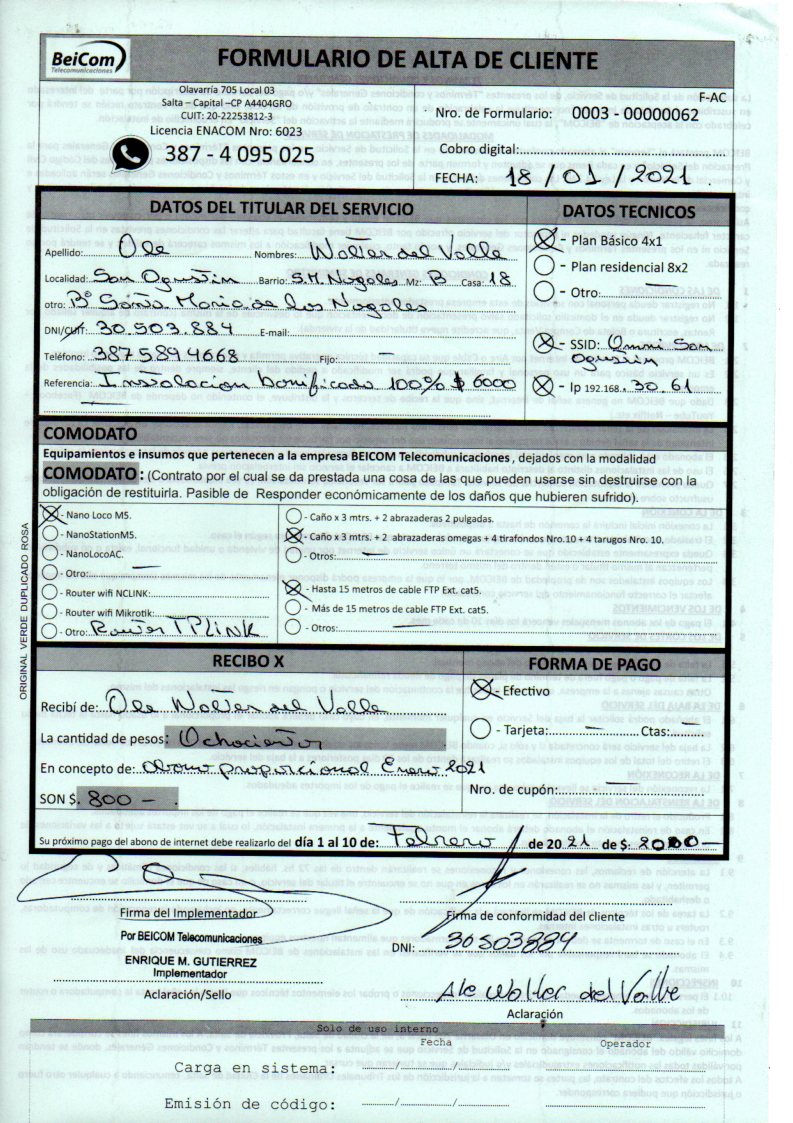 BeiCom
Telecomunicaciones
FORMULARIO DE ALTA DE CLIENTE
Olavarría 705 Local 03
Salta – Capital –CP A4404GRO
CUIT: 20-22253812-3
Licencia ENACOM Nro: 6023
387 - 4 095 025
F-AC
Nro. de Formulario: 0003 - 00000062
Cobro digital:
FECHA: 18 / 01 / 2021
DATOS DEL TITULAR DEL SERVICIO
Apellido: Ale Nombres: Walter del Valle
Localidad: San Agustin Barrio: S.M. Nogales Mz: B Casa: 18
otro: Bº Santa Maria de los Nogales
DNI/CUIT: 30.503.884 E-mail:
Teléfono: 3875894668 Fijo: —
Referencia: Instalacion bonificada 100% $ 6000
DATOS TECNICOS
- Plan Básico 4x1
- Plan residencial 8x2
- Otro: —
- SSID: Omni San
Agustin
- Ip 192.168. 30.61
COMODATO
Equipamientos e insumos que pertenecen a la empresa BEICOM Telecomunicaciones, dejados con la modalidad
COMODATO: (Contrato por el cual se da prestada una cosa de las que pueden usarse sin destruirse con la
obligación de restituirla. Pasible de Responder económicamente de los daños que hubieren sufrido).
- Nano Loco M5.
- NanoStationM5.
- NanoLocoAC.
- Otro: —
- Router wifi NCLINK:
- Router wifi Mikrotik:
- Otro: Router TPLINK
- Caño x 3 mtrs. + 2 abrazaderas 2 pulgadas.
- Caño x 3 mtrs. + 2 abrazaderas omegas + 4 tirafondos Nro.10 + 4 tarugos Nro. 10.
- Otros: —
- Hasta 15 metros de cable FTP Ext. cat5.
- Más de 15 metros de cable FTP Ext. cat5.
- Otros: —
ORIGINAL VERDE DUPLICADO ROSA
RECIBO X
Recibí de: Ale Walter del Valle
La cantidad de pesos: Ochocientos
En concepto de: abono proporcional Enero 2021
SON $. 800 —
FORMA DE PAGO
- Efectivo
- Tarjeta: — Ctas: —
Nro. de cupón: —
Su próximo pago del abono de internet debe realizarlo del día 1 al 10 de: Febrero de 2021 de $: 2000 —
Firma del Implementador
Por BEICOM Telecomunicaciones
ENRIQUE M. GUTIERREZ
Implementador
Aclaración/Sello
Firma de conformidad del cliente
DNI: 30503884
Ale Walter del Valle
Aclaración
Solo de uso interno
Fecha Operador
Carga en sistema: / /
Emisión de código: / /